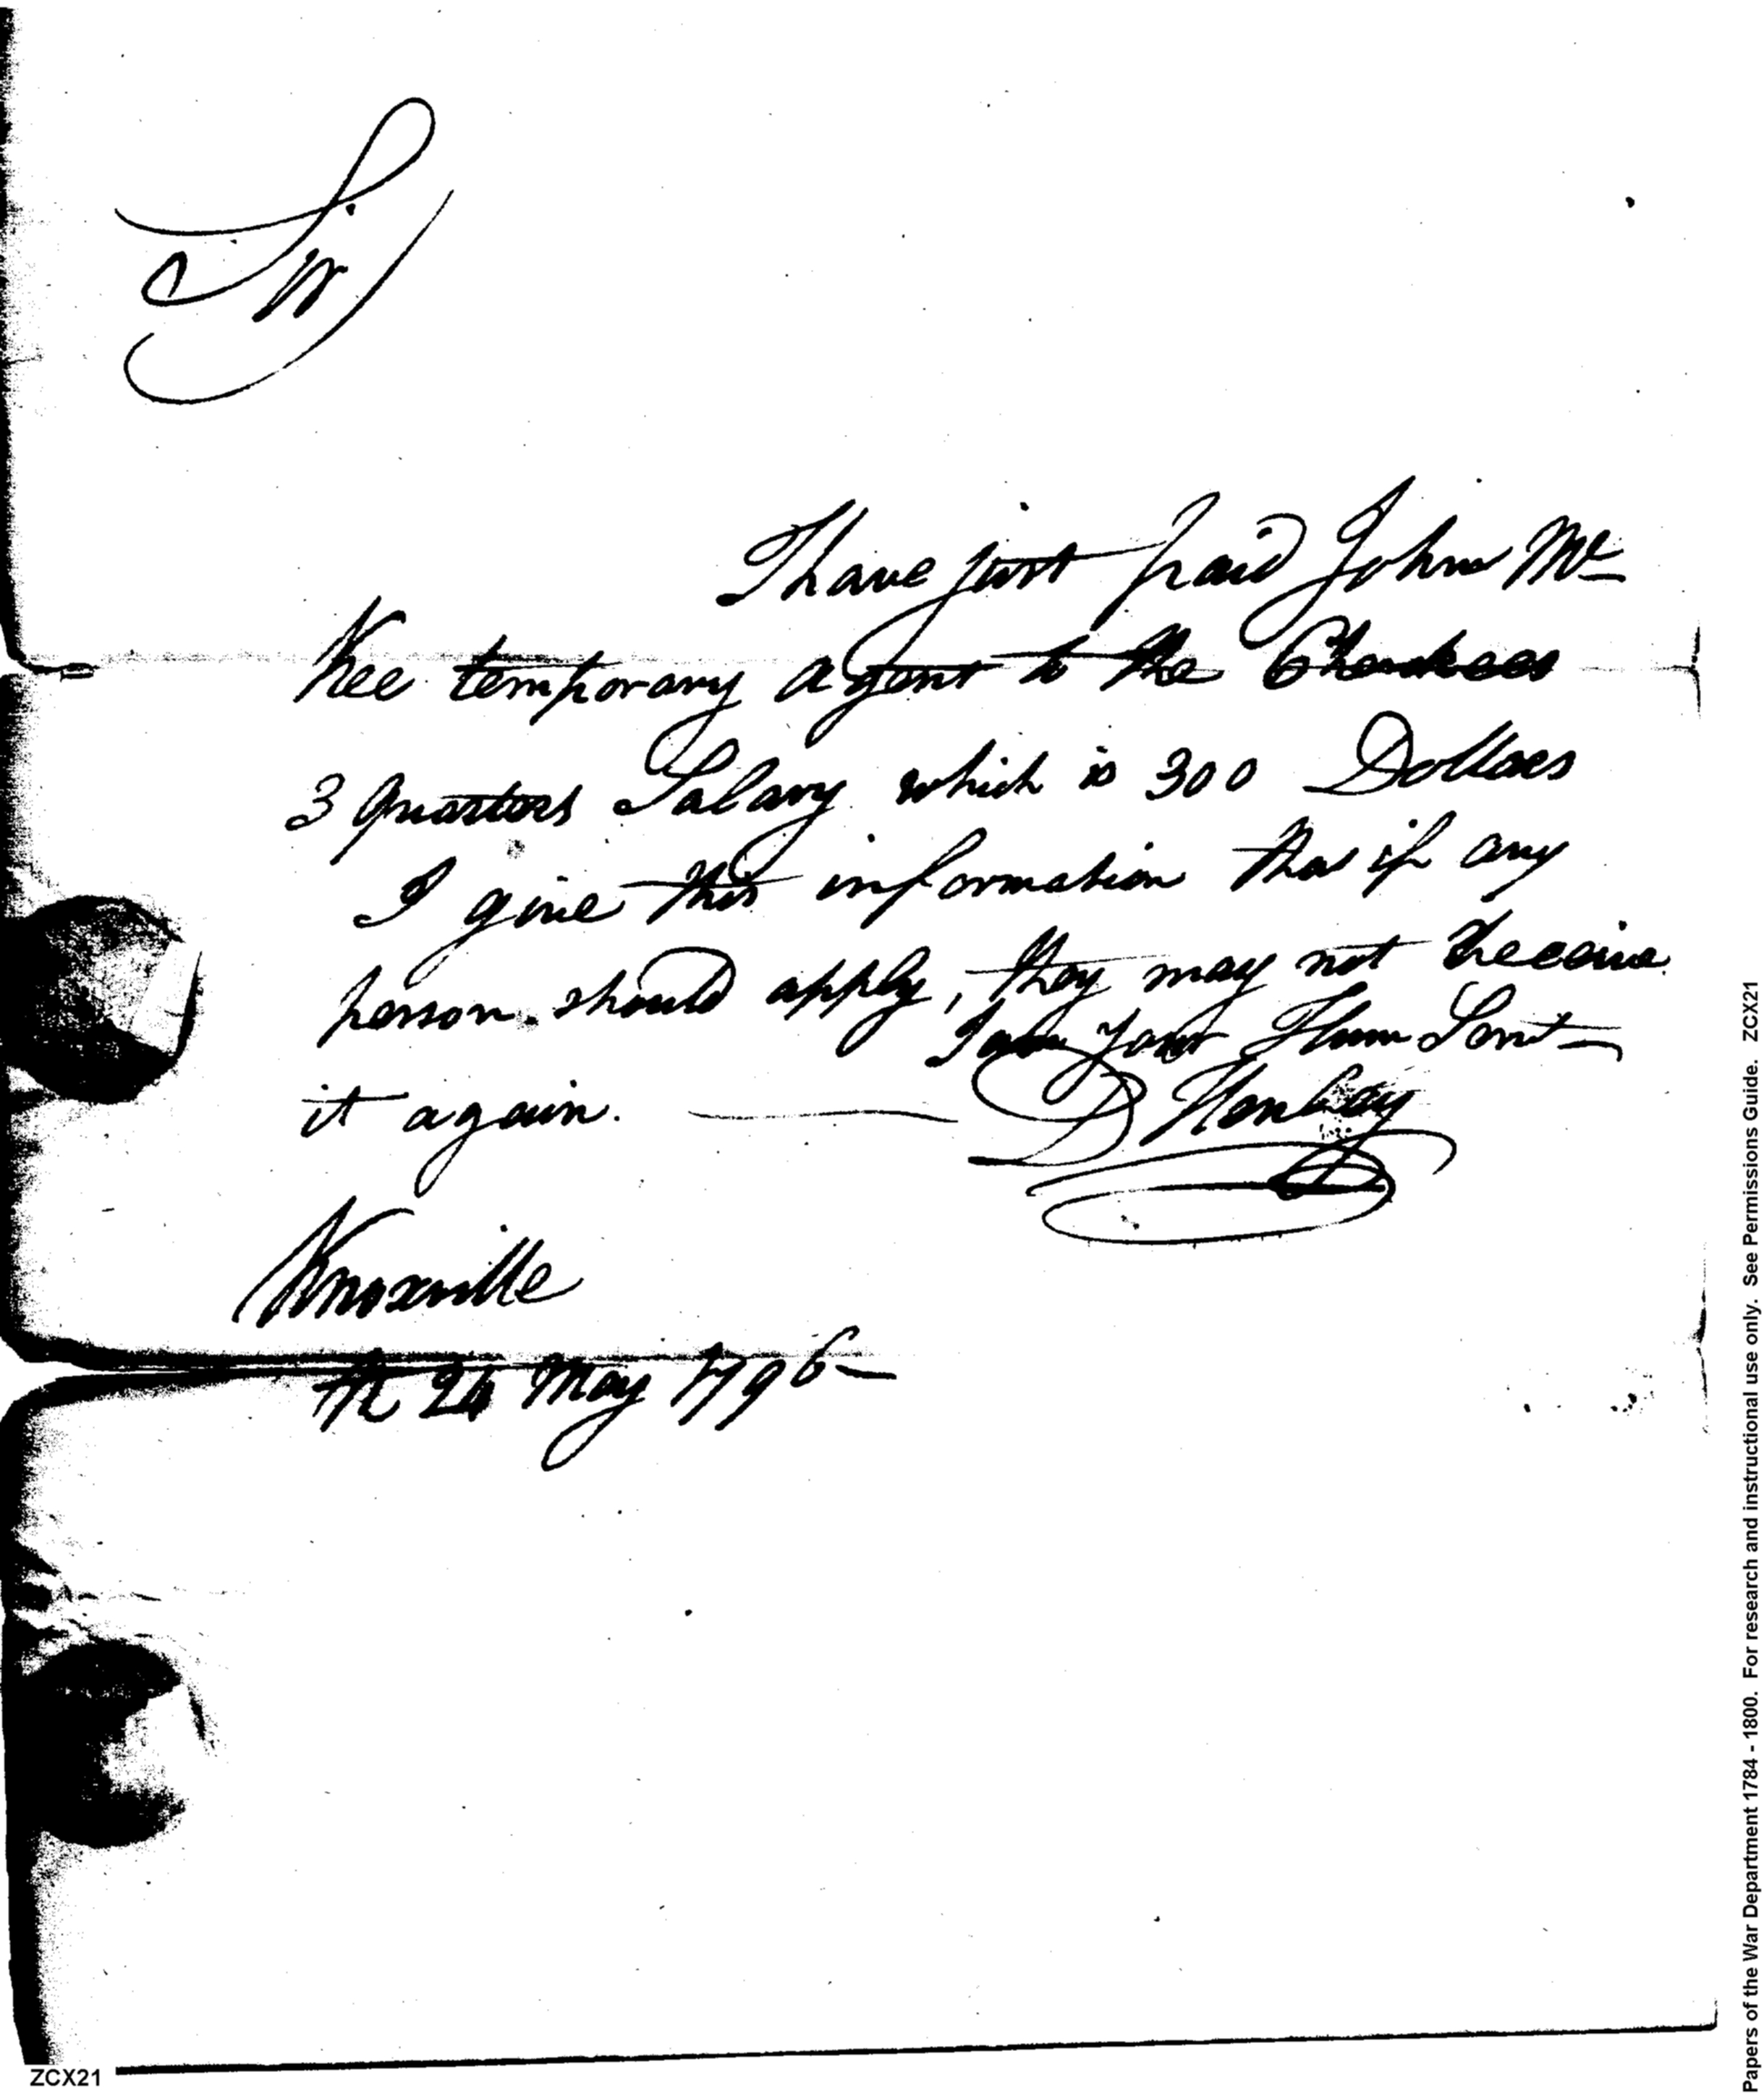 Sir
I have just paid John Mc
Kee temporary agent to the Cherokees
3 quarters Salary which is 300 Dollars
I give this information that if any
person should apply, they may not receive
it again.
I am your Hum Servt
D Henley
Knoxville
the 24 May 1796
ZCX21
Papers of the War Department 1784 - 1800. For research and instructional use only. See Permissions Guide. ZCX21